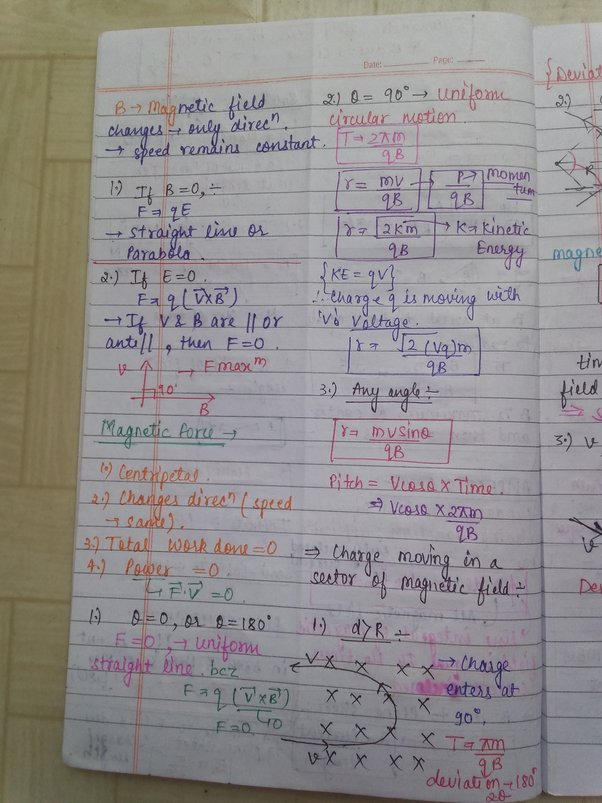 Date: ______ Page: ______
B → Magnetic field
changes → only direcⁿ.
→ speed remains constant.
1.) If B = 0, ÷
F ⇒ qE
→ straight line or
Parabola.
2.) If E = 0.
F = q (V⃗×B⃗)
→ If V & B are || or
anti||, then F = 0.
v → F maxᵐ
90°
B
Magnetic force →
1.) Centripetal.
2.) Changes direcⁿ (speed
→ same).
3.) Total work done = 0
4.) Power = 0.
↳ F⃗.V⃗ = 0.
1.) θ = 0, or θ = 180°
F = 0, → uniform
straight line. bcz
F ⇒ q (V⃗×B⃗)
↳0
F = 0.
2.) θ = 90° → uniform
circular motion.
T ⇒ 2πm/qB
r = mv/qB → P/qB → Momen
tum
r = √2Km/qB → K → Kinetic
Energy
{KE = qV}
∴ charge q is moving with
'V' Voltage.
r = √2(Vq)m/qB
3.) Any angle ÷
r = mvsinθ/qB
Pitch = Vcosθ × Time.
⇒ Vcosθ × 2πm/qB
⇒ Charge moving in a
sector of magnetic field ÷
1.) d>R ÷
V x x x x → Charge
x x x x enters at
90°.
x x x x T ⇒ πm/qB
v x x x x
deviation → 180°
2θ
{Deviat
2.)
magne
tim
field
⇒ s
3.) v
v
De